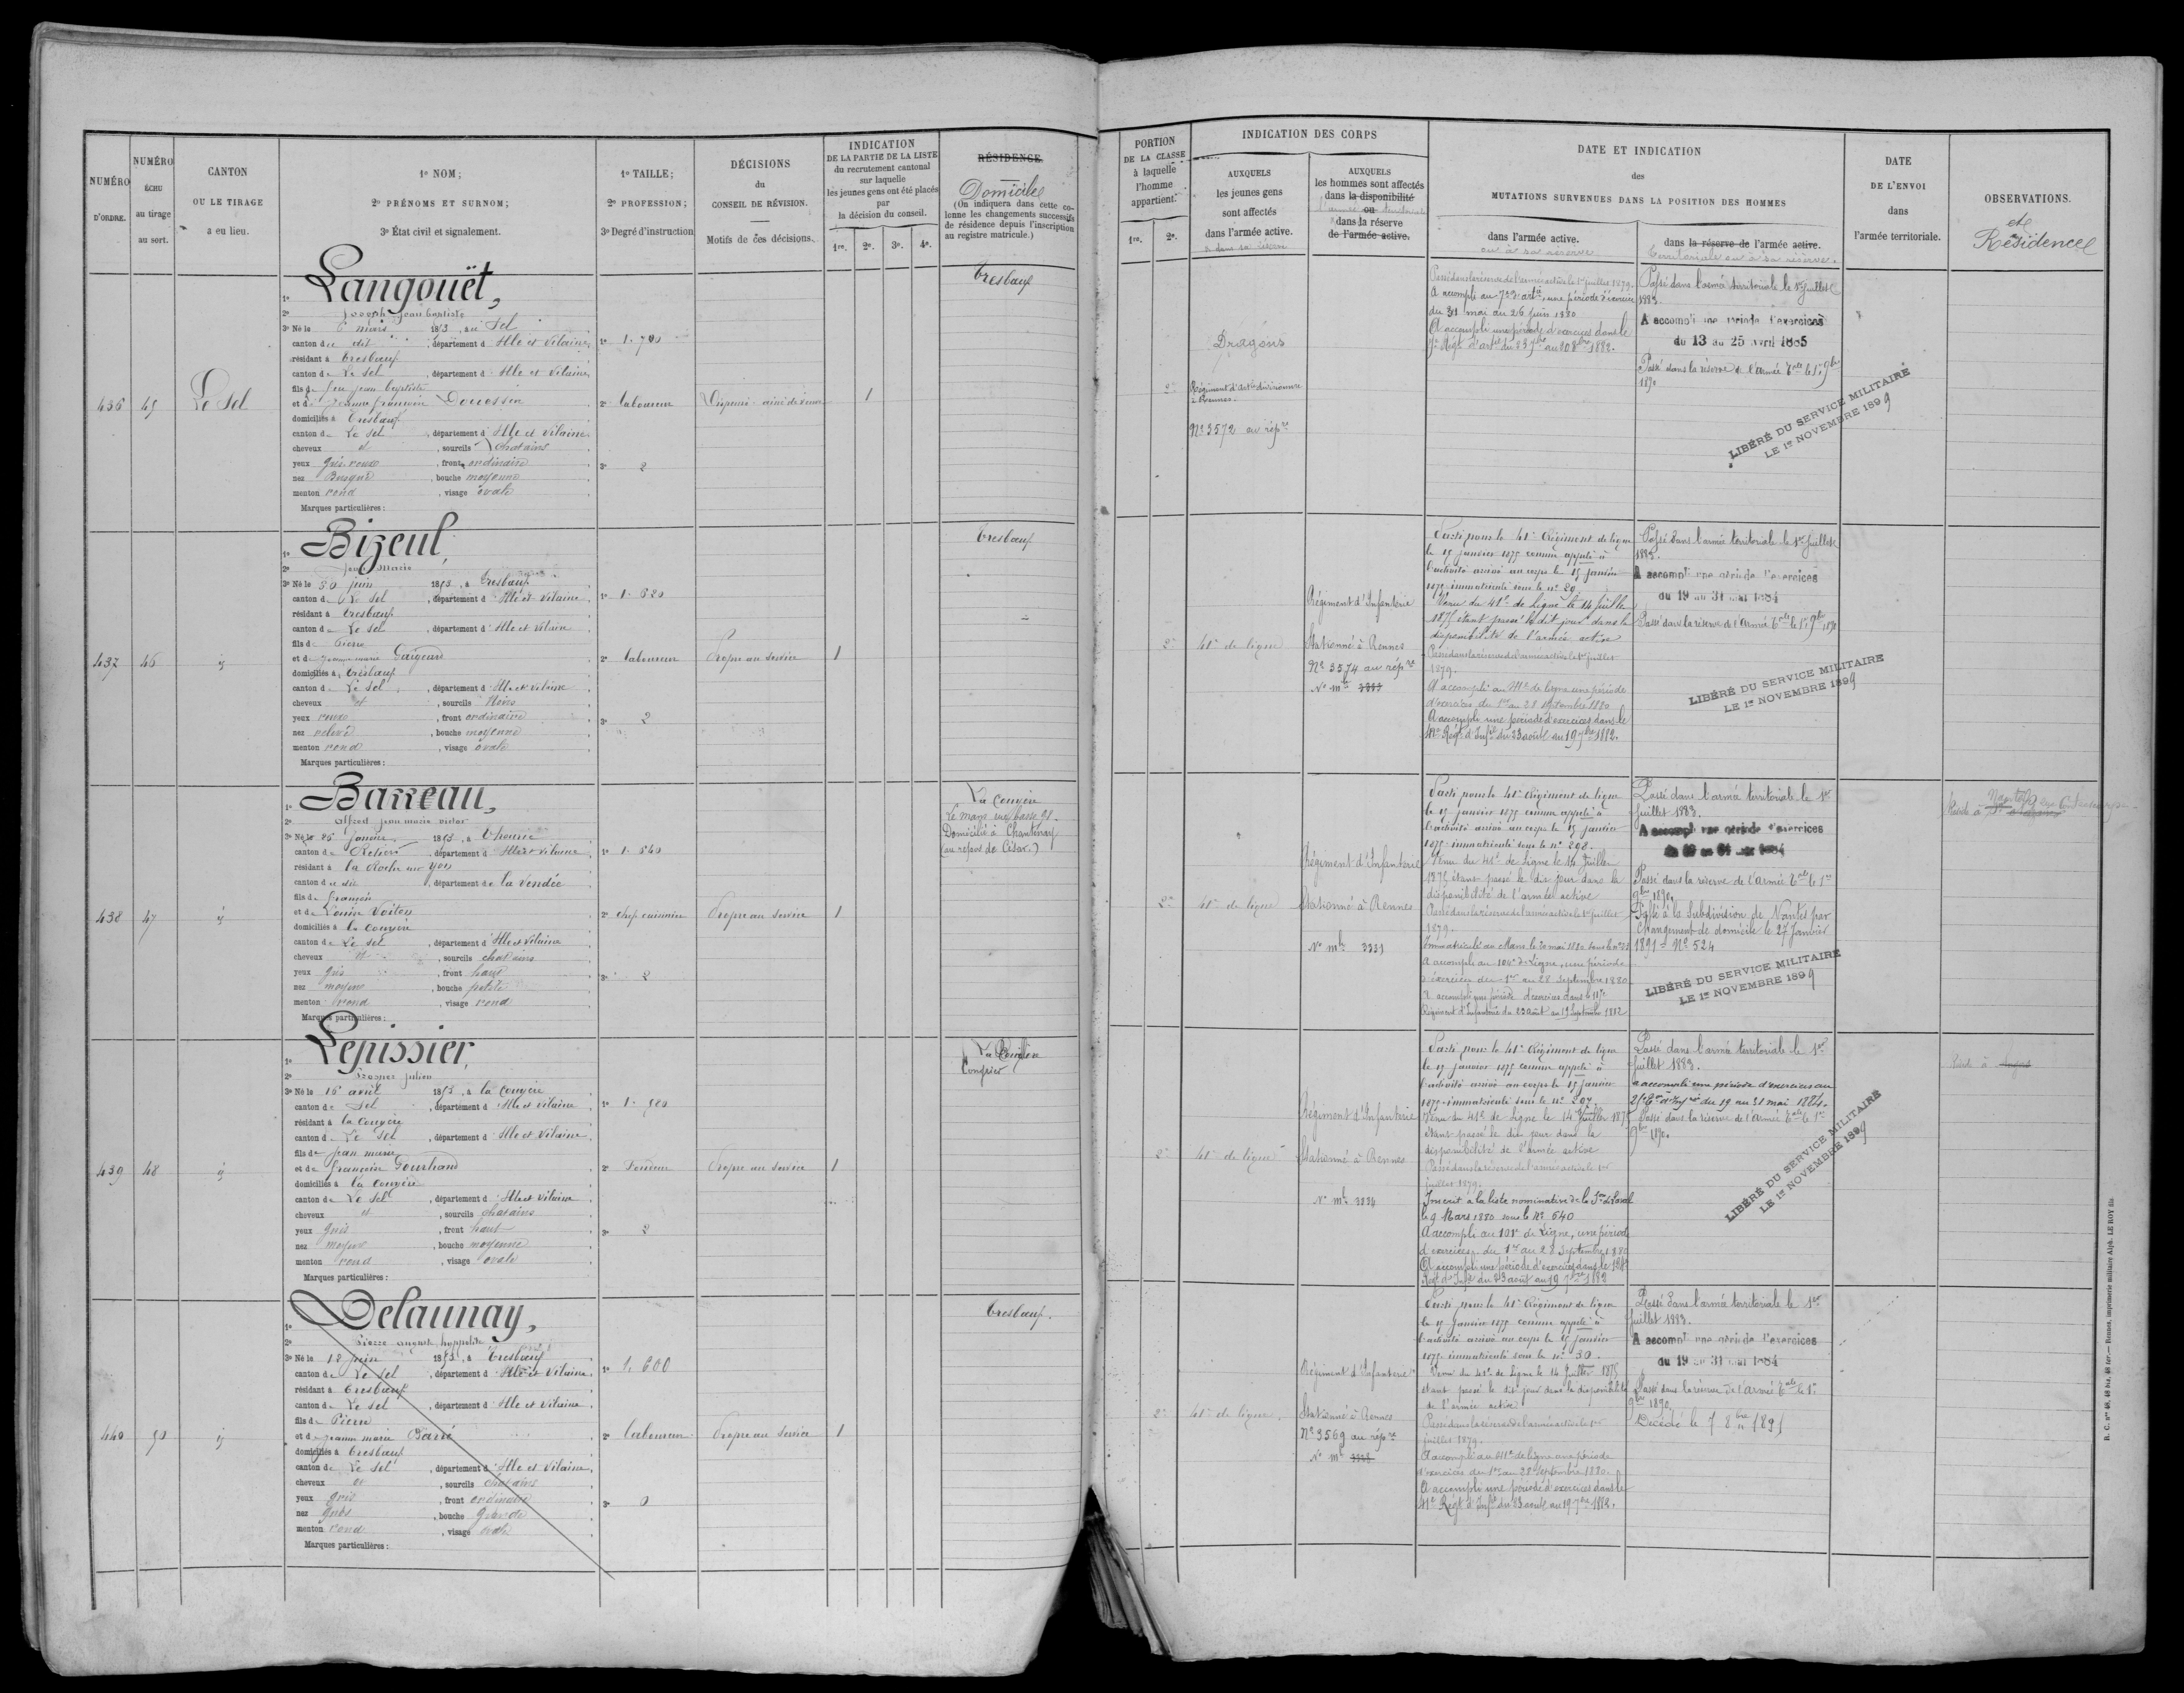 NUMÉRO D'ORDRE.
NUMÉRO ÉCHU au tirage au sort.
CANTON OU LE TIRAGE a eu lieu.
1º NOM;
2º PRÉNOMS ET SURNOM;
3º État civil et signalement.
1º TAILLE;
2º PROFESSION;
3º Degré d'instruction
DÉCISIONS du CONSEIL DE RÉVISION.
Motifs de ces décisions.
INDICATION DE LA PARTIE DE LA LISTE du recrutement cantonal sur laquelle les jeunes gens ont été placés par la décision du conseil.
1re. 2e. 3e. 4e.
RÉSIDENCE.
Domicile
(On indiquera dans cette colonne les changements successifs de résidence depuis l'inscription au registre matricule.)
PORTION DE LA CLASSE à laquelle l'homme appartient.
1re. 2e.
INDICATION DES CORPS
AUXQUELS les jeunes gens sont affectés dans l'armée active.
AUXQUELS les hommes sont affectés dans la disponibilité ou dans la réserve de l'armée active.
DATE ET INDICATION des MUTATIONS SURVENUES DANS LA POSITION DES HOMMES
dans l'armée active.
ou à sa réserve
dans la réserve de l'armée active.
territoriale ou à sa réserve.
DATE DE L'ENVOI dans l'armée territoriale.
OBSERVATIONS.
et Résidence
436
49
Le Sel
1º Langouët,
2º Joseph Jean baptiste
3º Né le 6 mars 1853, au Sel
canton du dit, département d Ille et Vilaine
résidant à Tresbœuf
canton de Le Sel, département d Ille et Vilaine
fils de feu jean baptiste
et de jeanne françoise Douessin
domiciliés à Tresbœuf
canton de Le Sel, département d Ille et Vilaine
cheveux et, sourcils chatains
yeux gris roux, front ordinaire
nez Busqué, bouche moyenne
menton rond, visage ovale
Marques particulières :
2º laboureur
3º 2
1
Tresbœuf
Dragons
2e
Régiment d'Artie divisionnaire
à Rennes.
Nº 3572 au répre
Passé dans la réserve de l'armée active le 1er juillet 1879.
A accompli au 7e d'artie, une période d'exercice
du 31 mai au 26 juin 1880
A accompli une période d'exercices dans le
Passé dans l'armée territoriale le 1er Juillet
1883.
A accompli une période d'exercices
du 13 au 25 avril 1885
Passé dans la réserve de l'Armée Tale le 1er 9bre
1890
LIBÉRÉ DU SERVICE MILITAIRE
LE 1er NOVEMBRE 1899
437
46
id
1º Bizeul,
2º Jean Marie
3º Né le 30 juin 1853, à Tresbœuf
canton de Le Sel, département d Ille et Vilaine
résidant à Tresbœuf
canton de Le Sel, département d Ille et Vilaine
fils de Pierre
et de jeanne marie
domiciliés à Tresbœuf
canton de Le Sel, département d Ille et Vilaine
cheveux et, sourcils Noirs
yeux roux, front ordinaire
nez relevé, bouche moyenne
menton rond, visage ovale
Marques particulières :
1º 1. 620
2º laboureur
3º 2
Propre au service
1
Tresbœuf
2e
41e de ligne
Régiment d'Infanterie
Stationné à Rennes
Nº 3574 au répre
Nº mle
Parti pour le 41e Régiment de ligne
le 15 janvier 1875 comme appelé à
l'activité arrivé au corps le 15 janvier
1875 immatriculé sous le nº 29.
Venu du 41e de ligne le 14 Juillet
1875 étant passé le dit jour dans la
disponibilité de l'armée active
Passé dans la réserve de l'armée active le 1er juillet
1879.
A accompli au 41e de ligne une période
d'exercices du 1er au 28 septembre 1880
A accompli une période d'exercices dans le
41e Régt d'Infie du 23 août au 19 7bre 1882.
Passé dans l'armée territoriale le 1er Juillet
1883.
A accompli une période d'exercices
du 19 au 31 mai 1884
Passé dans la réserve de l'Armée Tale le 1er 9bre 1890
LIBÉRÉ DU SERVICE MILITAIRE
LE 1er NOVEMBRE 1899
438
47
id
1º Barreau,
2º Alfred jean marie victor
3º Né le 26 janvier 1853, à Thourie
canton de Retiers, département d Ille et Vilaine
résidant à la Roche sur Yon
canton du dit, département de la Vendée
fils de François
et de Louise
domiciliés à la Couyère
canton de Le Sel, département d Ille et Vilaine
cheveux et, sourcils chatains
yeux gris, front haut
nez moyen, bouche petite
menton rond, visage rond
Marques particulières :
1º 1. 640
2º chef cuisinier
3º 2
Propre au service
1
La Couyère
Le Mans rue basse 98.
Domicilié à Chantenay
(au repos de César.)
2e
41e de ligne
Régiment d'Infanterie
Stationné à Rennes
Nº mle 3331
Parti pour le 41e Régiment de ligne
le 15 janvier 1875 comme appelé à
l'activité arrivé au corps le 15 janvier
1875 immatriculé sous le nº 208.
Venu du 41e de ligne le 14 Juillet
1875 étant passé le dit jour dans la
disponibilité de l'armée active
Passé dans la réserve de l'armée active le 1er juillet
1879.
Immatriculé au Mans le 20 mai 1880
A accompli au 104e de Ligne, une période
d'exercices du 1er au 28 Septembre 1880
A accompli une période d'exercices dans le
Régiment d'Infanterie du 23 août au 19 Septembre 1882
Passé dans l'armée territoriale le 1er
Juillet 1883.
A accompli une période d'exercices
Passé dans la réserve de l'Armée Tale le 1er
9bre 1890
Passé à la Subdivision de Nantes par
changement de domicile le 27 Janvier
1891 - Nº 524
LIBÉRÉ DU SERVICE MILITAIRE
LE 1er NOVEMBRE 1899
Réside à Nantes
439
48
id
1º Lepissier,
2º Prosper Julien
3º Né le 16 avril 1853, à la Couyère
canton de Sel, département d Ille et Vilaine
résidant à la Couyère
canton de Le Sel, département d Ille et Vilaine
fils de jean marie
et de françoise Gourhand
domiciliés à la Couyère
canton de Le Sel, département d Ille et Vilaine
cheveux et, sourcils chatains
yeux gris, front haut
nez moyen, bouche moyenne
menton rond, visage ovale
Marques particulières :
1º 1. 580
3º 2
Propre au service
1
La Couyère
2e
41e de ligne
Régiment d'Infanterie
Stationné à Rennes
Nº mle 3834
Parti pour le 41e Régiment de ligne
le 15 janvier 1875 comme appelé à
l'activité arrivé au corps le 15 janvier
1875 immatriculé sous le nº 207.
Venu du 41e de ligne le 14 Juillet 1875
étant passé le dit jour dans la
disponibilité de l'armée active
Passé dans la réserve de l'armée active le 1er
juillet 1879.
Inscrit à la liste nominative de la Son de Laval
le 9 Mars 1880 sous le Nº 640
A accompli au 101e de Ligne, une période
d'exercices du 1er au 28 Septembre 1880
A accompli une période d'exercices dans le
Régt d'Infie du 23 août au 19 7bre 1882
Passé dans l'armée territoriale le 1er
Juillet 1883.
a accompli une période d'exercices au
du 19 au 31 mai 1884.
Passé dans la réserve de l'Armée Tale le 1er
9bre 1890.
LIBÉRÉ DU SERVICE MILITAIRE
LE 1er NOVEMBRE 1899
Réside à
440
50
id
1º Delaunay,
2º Pierre auguste hyppolite
3º Né le 18 juin 1853, à Tresbœuf
canton de Le Sel, département d Ille et Vilaine
résidant à Tresbœuf
canton de Le Sel, département d Ille et Vilaine
fils de Pierre
et de jeanne marie Barré
domiciliés à Tresbœuf
canton de Le Sel, département d Ille et Vilaine
cheveux et, sourcils chatains
yeux gris, front ordinaire
nez gros, bouche grande
menton rond, visage ovale
Marques particulières :
1º 1. 600
2º laboureur
3º 0
Propre au service
1
Tresbœuf.
2e
41e de ligne
Régiment d'Infanterie
Stationné à Rennes
Nº 3569 au répre
Nº mle 3328
Parti pour le 41e Régiment de ligne
le 15 janvier 1875 comme appelé à
l'activité arrivé au corps le 15 janvier
1875 immatriculé sous le nº 30.
Venu du 41e de ligne le 14 Juillet 1875
étant passé le dit jour dans la disponibilité
de l'armée active
Passé dans la réserve de l'armée active le 1er
juillet 1879.
A accompli au 41e de ligne une période
d'exercices du 1er au 28 Septembre 1880.
A accompli une période d'exercices dans le
41e Régt d'Infie du 23 août au 19 7bre 1882.
Passé dans l'armée territoriale le 1er
Juillet 1883.
A accompli une période d'exercices
du 19 au 31 mai 1884
Passé dans la réserve de l'Armée Tale le 1er
9bre 1890
Décédé le 7 8bre 1891
R. C. nos 48, 48 bis, 48 ter. — Rennes, imprimerie militaire Alph. LE ROY fils